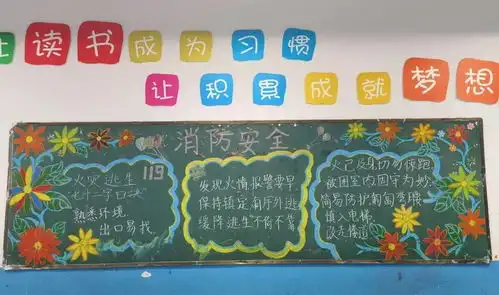 让读书成为习惯
让积累成就梦想
消防安全
119
火灾逃生
七十二字口诀
熟悉环境
出口易找
发现火情报警要早
保持镇定有序外逃
缓降逃生不俯不等
火已及身切勿惊跑
被困室内固守为妙
简易防护匍匐弯腰
慎入电梯
改走楼道